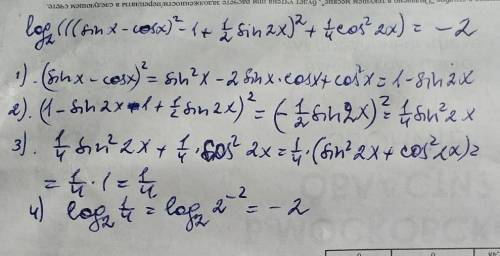 log₂(((sinx-cosx)²-1+½sin2x)²+¼cos²2x)=-2
1). (sinx-cosx)²=sin²x-2sinx·cosx+cos²x=1-sin2x
2). (1-sin2x-1+½sin2x)²=(-½sin2x)²=¼sin²2x
3). ¼sin²2x+¼·cos²2x=¼·(sin²2x+cos²2x)=
=¼·1=¼
4) log₂¼=log₂2⁻²=-2